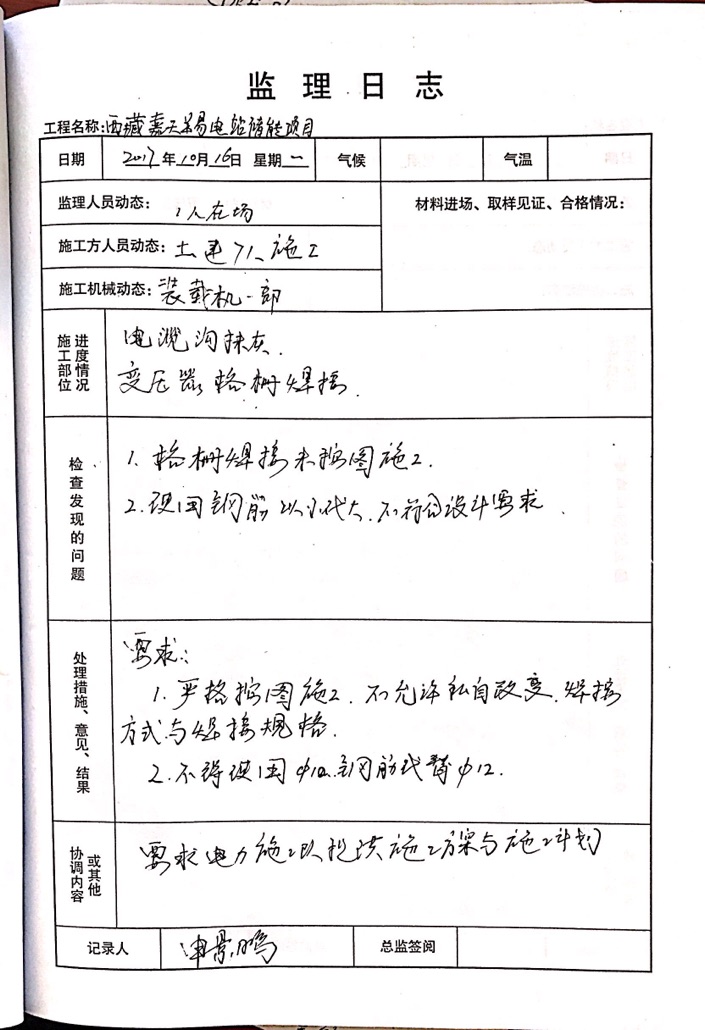 监理日志
工程名称：西藏嘉天 易电站储能项目
日期 2017年10月16日 星期一 气候 气温
监理人员动态： 1人在场
材料进场、取样见证、合格情况：
施工方人员动态： 土建7人施工
施工机械动态： 装载机一部
施工部位
进度情况
电缆沟抹灰.
变压器格栅焊接.
检查发现的问题
1. 格栅焊接未按图施工.
2. 使用钢筋以小代大.不符合设计要求.
处理措施、意见、结果
要求：
1. 严格按图施工.不允许私自改变.焊接
方式与焊接规格.
2. 不得使用φ10钢筋代替φ12.
协调内容
或其他
要求电力施工队提供施工方案与施工计划
记录人 申景鹏 总监签阅